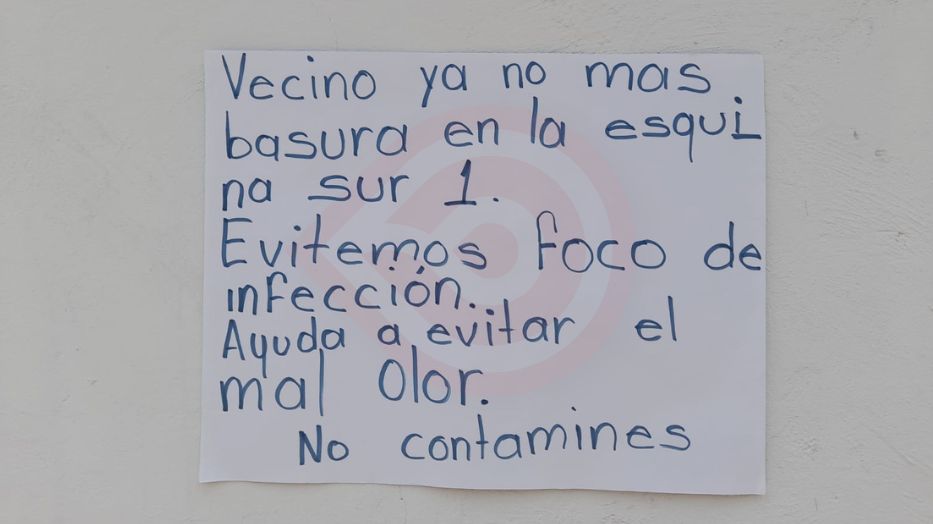 Vecino ya no mas
basura en la esqui
na sur 1.
Evitemos foco de
infección.
Ayuda a evitar el
mal Olor.
No contamines